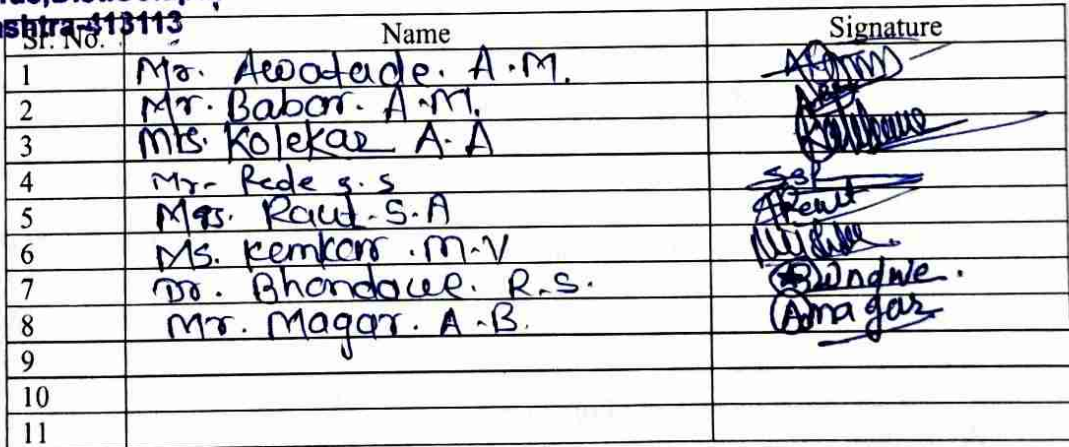 shtra-413113
Sr. No. Name Signature
1 Mr. Awatade. A.M.
2 Mr. Babar. A.M.
3 Mrs. Kolekar A.A
4 Mr. Rede S.S
5 Mrs. Raut.S.A Araut
6 Ms. Kemkar .M.V
7 Dr. Bhandawe. R.S.
8 Mr. Magar. A.B. Amagar
9
10
11